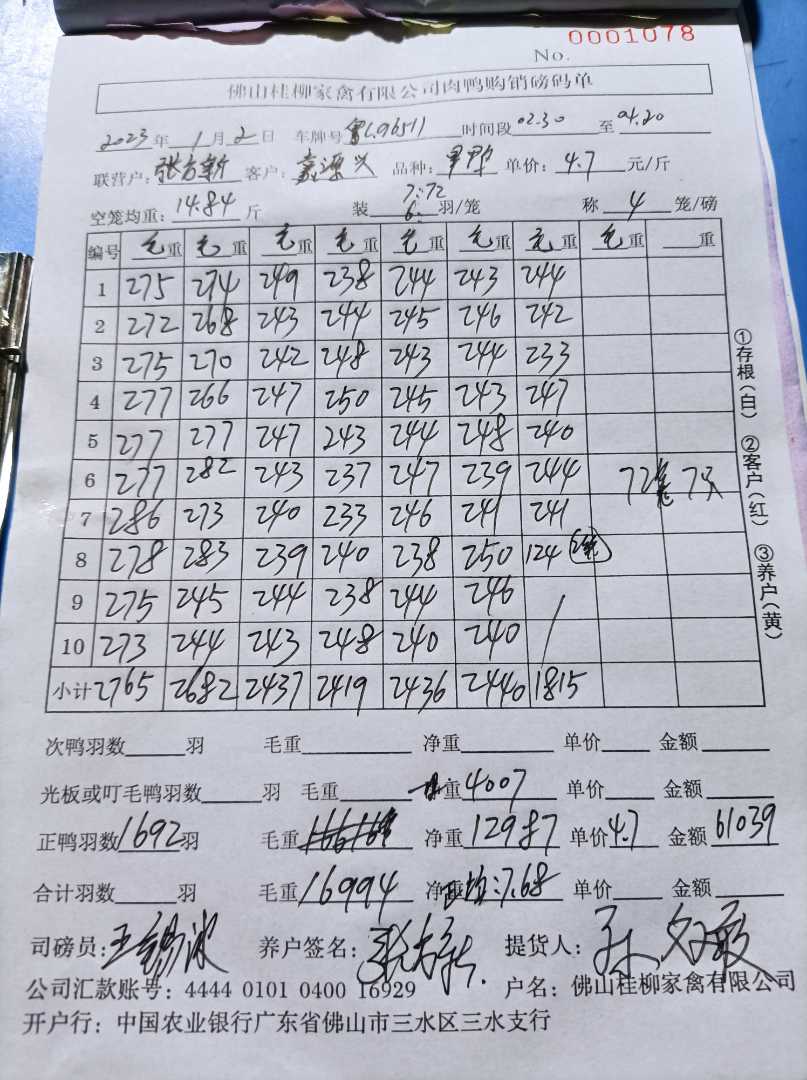 No. 0001078
佛山桂柳家禽有限公司肉鸭购销磅码单
2023年1月2日 车牌号 粤L96511 时间段02.30至04.20
联营户:张方新 客户:嘉源兴 品种: 单价:4.7元/斤
空笼均重:14.84斤 装 7:72 6: 羽/笼 称4笼/磅
编号 毛重 毛重 毛重 毛重 毛重 毛重 毛重 毛重 重
1 275 274 249 238 244 243 244
2 272 268 243 244 245 246 242
3 275 270 242 248 243 244 233
4 277 266 247 250 245 243 247
5 277 277 247 243 244 248 240
6 277 282 243 237 247 239 244 72笼7只
7 286 273 240 233 246 241 241
8 278 283 239 240 238 250 124 2笼
9 275 245 244 238 244 246 /
10 273 244 243 248 240 240 /
小计 2765 2682 2437 2419 2436 2440 1815
①存根(白) ②客户(红) ③养户(黄)
次鸭羽数 羽 毛重 净重 单价 金额
光板或叮毛鸭羽数 羽 毛重 重4007 单价 金额
正鸭羽数1692羽 毛重 净重12987 单价4.7 金额61039
合计羽数 羽 毛重16994 净 均:7.68 单价 金额
司磅员:王锡波 养户签名:张方新 提货人:
公司汇款账号:4444 0101 0400 16929 户名:佛山桂柳家禽有限公司
开户行:中国农业银行广东省佛山市三水区三水支行